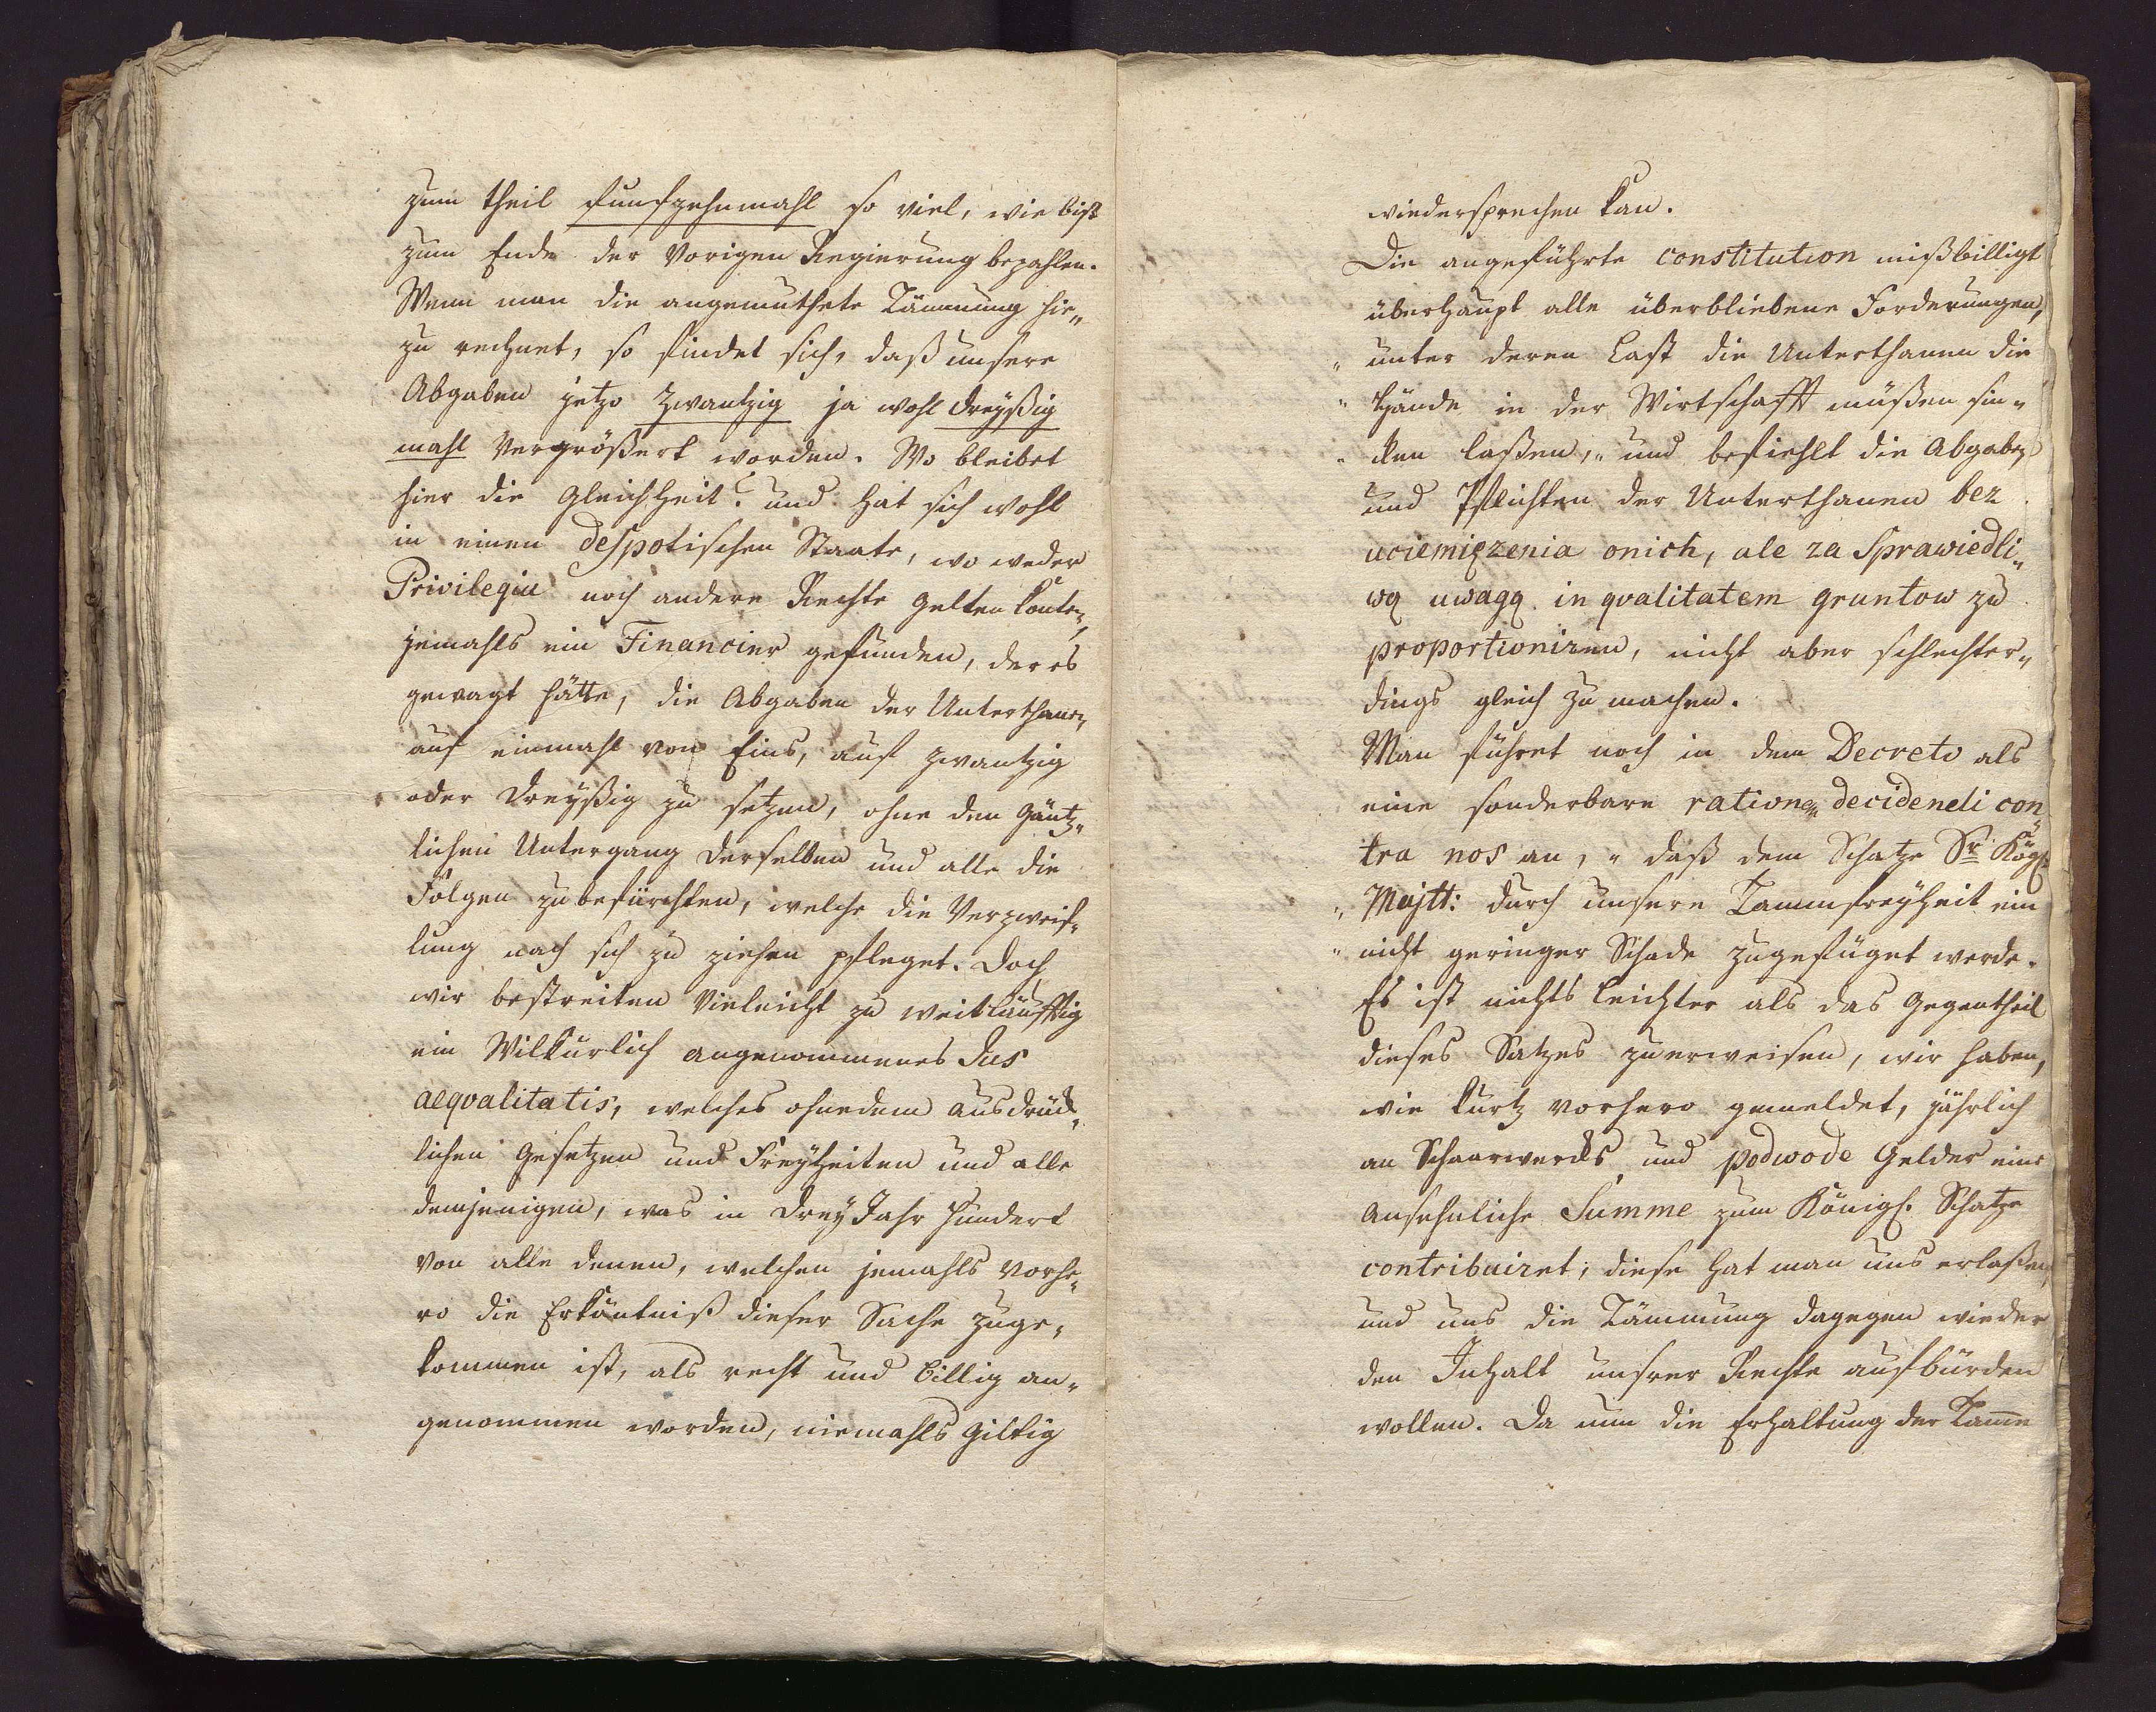 zum theil funfzehnmahl so viel, wie biß
zum Ende der vorigen Regierung bezahlen.
Wenn man die angemuthete Tämmung hie„
zu rechnet, so findet sich, daß unsere
Abgaben jetzo zwantzig ja wohl dreyßig
mahl vergrößert worden. Wo bleibet
hier die Gleichheit? und hat sich wohl
in einen despotischen Staate, wo weder
Privilegia noch andere Rechte gelten konten,
jemahls ein Financier gefunden, der es
gewagt hätte, die Abgaben der Unterthanen,
auf einmahl von Eins, auf zwantzig
oder dreyßig zu setzen, ohne den gäntz„
lichen Untergang derselben und alle die
Folgen zu befürchten, welche die Verzweif„
lung nach sich zu ziehen pfleget. Doch
wir bestreiten vieleicht zu weitläufftig
ein Wilkürlich angenommenes Jus
aeqvalitatis, welches ohnedem ausdrück„
lichen Gesetzen und Freyheiten und alle
demjenigen, was in drey Jahr hundert
von alle denen, welchen jemahls vorhe„
ro die Erkäntniß dieser Sache zuge„
kommen ist, als recht und billig an„
genommen worden, niemahls giltig
wiedersprechen kan.
Die angeführte constitution mißbilligt
überhaupt alle überbliebene Forderungen,
„ unter deren Last die Unterthanen die
„ Hände in der Wirtschafft müßen sin„
„ ken laßen,„ und befiehlt die Abgaben
und Pflichten der Unterthanen bez
uciemięzenia onich, ale za Sprawiedli„
wą uwagą in qvalitatem gruntow zu
proportioniren, nicht aber schlechter„
dings gleich zu machen.
Man führet noch in dem Decreto als
eine sonderbare rationem decidendi con„
tra nos an, „ daß dem Schatze Sr Kögl:
„ Majtt: durch unsere Tammfreyheit ein
„ nicht geringer Schade zugefüget werde.
Es ist nichts leichter als das Gegentheil
dieses Satzes zu erweisen, wir haben,
wie kurtz vorhero gemeldet, jährlich
an Schaarwercks und podwode Gelder eine
ansehnliche Summe zum Königl. Schatze
contribuiret; diese hat man uns erlaßen,
und uns die Tämmung dagegen wieder
den Inhalt unsrer Rechte aufbürden
wollen. Da nun die Erhaltung der Tam̅e